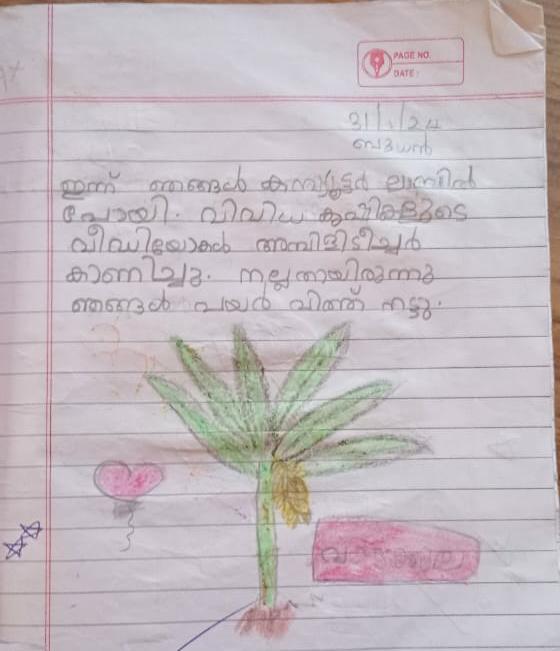 PAGE NO.
DATE :
31/1/24
ബുധൻ
ഇന്ന് ഞങ്ങൾ കമ്പ്യൂട്ടർ ലാബിൽ
പോയി. വിവിധ കൃഷികളുടെ
വീഡിയോകൾ അമ്പിളിടീച്ചർ
കാണിച്ചു. നല്ലതായിരുന്നു
ഞങ്ങൾ പയർ വിത്ത് നട്ടു.